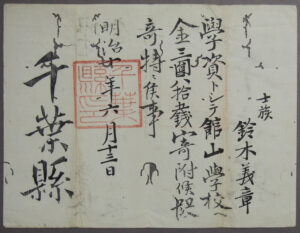 士族
鈴木義章
學資トシテ舘山學校ヘ
金三圓拾錢寄附候段
奇特ニ候事
明治十年六月十三日
千葉縣